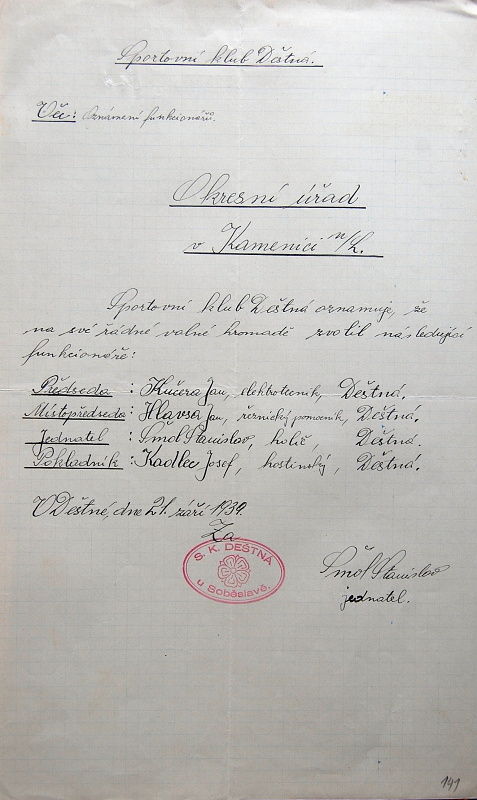 Sportovní klub Deštná.
Věc: Oznámení funkcionářů.
Okresní úřad
v Kamenici n/L.
Sportovní klub Deštná oznamuje, že
na své řádné valné hromadě zvolil následující
funkcionáře:
Předseda : Kučera Jan, elektrotechnik, Deštná.
Místopředseda : Hlavsa Jan, řeznický pomocník, Deštná.
Jednatel : Šmöl Stanislav, holič Deštná.
Pokladník : Kadlec Josef, hostinský, Deštná.
V Deštné, dne 21. září 1939.
Za
S. K. DEŠTNÁ
u Soběslavě.
Šmöl Stanislav
jednatel.
141